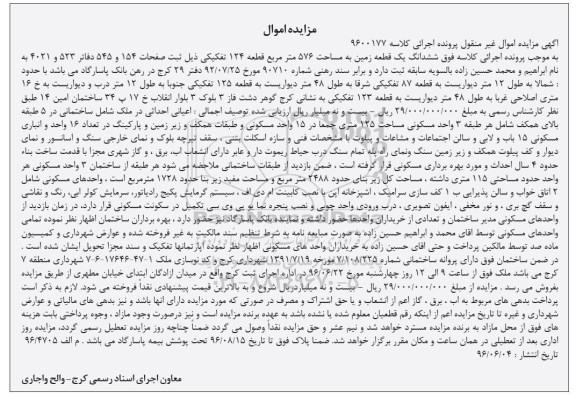 مزایده اموال
آگهی مزایده اموال غیر منقول پرونده اجرائی کلاسه ۹۶۰۰۱۷۷
به موجب پرونده اجرائی کلاسه فوق ششدانگ یک قطعه زمین به مساحت ۵۷۶ متر مربع قطعه ۱۲۴ تفکیکی ذیل ثبت صفحات ۱۵۴ و ۵۴۵ دفاتر ۵۲۳ و ۴۰۲۱ به
نام ابراهیم و محمد حسین زاده بالسویه سابقه ثبت دارد و برابر سند رهنی شماره ۹۰۷۱۰ مورخ ۹۲/۰۷/۲۵ دفتر ۲۹ کرج در رهن بانک پاسارگاد می باشد با حدود
: شمالا به طول ۱۲ متر دیواریست به قطعه ۸۷ تفکیکی شرقا به طول ۴۸ متر دیواریست به قطعه ۱۲۵ تفکیکی جنوبا به طول ۱۲ متر درب و دیواریست به خ ۱۶
متری اصلاحی غربا به طول ۴۸ متر دیواریست به قطعه ۱۲۳ تفکیکی به نشانی کرج گوهر دشت فاز ۳ بلوک ۳ بلوار انقلاب خ ۱۷ پ ۳۴ ساختمان امین ۱۴ طبق
نظر کارشناس رسمی به مبلغ ۲۹/۰۰۰/۰۰۰/۰۰۰ ریال – بیست و نه میلیارد ریال ارزیابی شده توصیف اجمالی : اعیانی احداثی در ملک شامل ساختمانی در ۵ طبقه
بالای همکف شامل هر طبقه ۳ واحد مسکونی مساحت ۱۳۵ متری جمعا در ۱۵ واحد مسکونی و طبقات همکف و زیر زمین و پارکینگ در تعداد ۱۶ واحد و انباری
مسکونی ۱۵ باب و لابی و سالن اجتماعات و مشاعات و پیلوت با مشخصات فنی و سازه اسکلت بتنی ، سقف تیرچه بلوک و نمای خارجی سنگ و آسانسور و نمای
دیوار و کف پیلوت همکف و زیر زمین سنگ ونمای راه پله تمام سنگ درب حیاط ریموت دار و عابر دارای انشعاب آب، برق ، و گاز شهری مجزا با قدمت ساخت بناء
حدود ۴ سال احداث و مورد بهره برداری مسکونی قرار گرفته است ، ضمن بازدید از طبقات ساختمانی ملاحظه می شود هر طبقه از ساختمان ۳ واحد مسکونی هر
واحد حدود مساحتی ۱۱۵ متری داشته ، مساحت کل زیر بنای حدود ۲۴۸۸ متر مربع و مساحت مفید زیر بنا حدود ۱۷۲۸ مترمربع است . واحدهای مسکونی شامل
۲ اتاق خواب و سالن پذیرایی ب ا کف سازی سرامیک ، آشپزخانه اپن با نصب کابینت ام دی اف ، سیستم گرمایش پکیج رادیاتور، سرمایش کولر آبی، رنگ و نقاشی
و سقف گچ بری ، و نور مخفی ، آیفون تصویری ، درب ورودی واحد چوبی و نصب پنجره نما یو پی وی سی تکمیل در سکونت مسکونی قرار دارد، در زمان بازدید از
واحدهای مسکونی مدیر ساختمان و تعدادی از خریداران واحدها حضور داشته و نماینده بانک پاسارگاد نیز حضور دارد ، بهره برداران ساختمان اظهار نظر نموده تمامی
واحدهای مسکونی توسط آقای محمد و ابراهیم حسین زاده به صورت مبایعه نامه به شرط تنظیم سند مالکیت به غیر فروخته شده و عوارض شهرداری و کمیسیون
ماده صد توسط مالکین پرداخت و حتی آقای حسین زاده به خریداران واحد های مسکونی اظهار نظر نموده آپارتمانها تفکیک و سند مجزا تحویل ایشان شده است .
در ضمن ساختمان فوق دارای پروانه ساختمانی شماره ۷/۱۰۸/۲۲۵ مورخه ۱۳۹۱/۷/۱۹ شهرداری کرج و کد نوسازی ملک ۱-۴۷-۱۷۶۴۶-۶-۷ شهرداری منطقه ۷
کرج می باشد ملک فوق از ساعت ۹ الی ۱۲ روز چهارشنبه مورخ ۹۶/۰۶/۲۲ در اداره اجرای ثبت کرج واقع در میدان آزادگان ابتدای خیابان مطهری از طریق مزایده
بفروش می رسد . مزایده از مبلغ ۲۹/۰۰۰/۰۰۰/۰۰۰ ریال – بیست و نه میلیاردریال شروع و به بالاترین قیمت پیشنهادی نقدا فروخته می شود. لازم به ذکر است
پرداخت بدهی های مربوط به آب ، برق ، گاز اعم از انشعاب و یا حق اشتراک و مصرف در صورتی که مورد مزایده دارای آنها باشد و نیز بدهی های مالیاتی و عوارض
شهرداری و غیره تا تاریخ مزایده اعم از اینکه رقم قطعیان معلوم شده یا نشده باشد به عهده برنده مزایده است و نیز درصورت وجود مازاد ، وجوه پرداختی بابت هزینه
های فوق از محل مازاد به برنده مزایده مسترد خواهد شد و نیم عشر و حق مزایده نقداً وصول می گردد ضمناً چنانچه روز مزایده تعطیل رسمی گردد، مزایده روز
اداری بعد از تعطیلی در همان ساعت و مکان مقرر برگزار خواهد شد. ضمنا پلاک فوق تا تاریخ ۹۶/۰۸/۱۵ تحت پوشش بیمه پاسارگاد می باشد . م الف ۹۶/۴۷۰۵
تاریخ انتشار : ۹۶/۰۶/۰۴
معاون اجرای اسناد رسمی کرج – والح واجاری